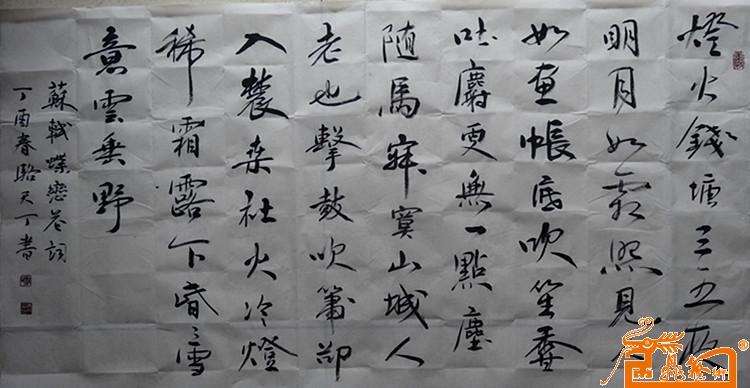 燈火錢塘三五夜
明月如霜照見人
如畫帳底吹笙香
吐麝更無一點塵
隨馬寂寞山城人
老也擊鼓吹簫却
入農桑社火冷燈
稀霜露下昏々雪
意雲垂野
蘇軾蝶戀花詞
丁酉春駱天丁書